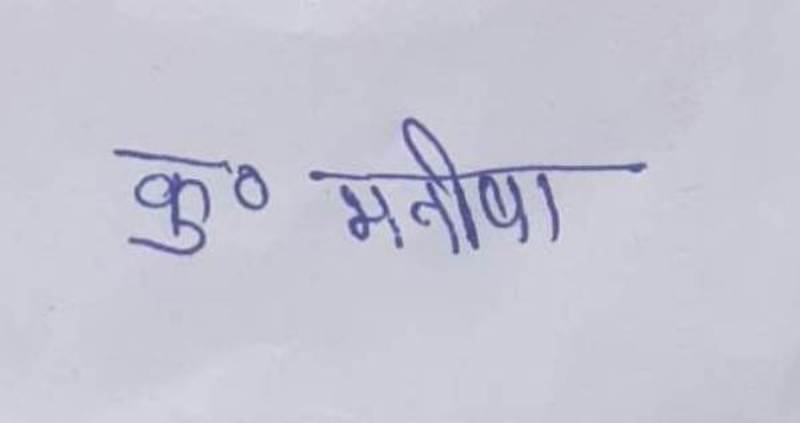 कु० मनीषा